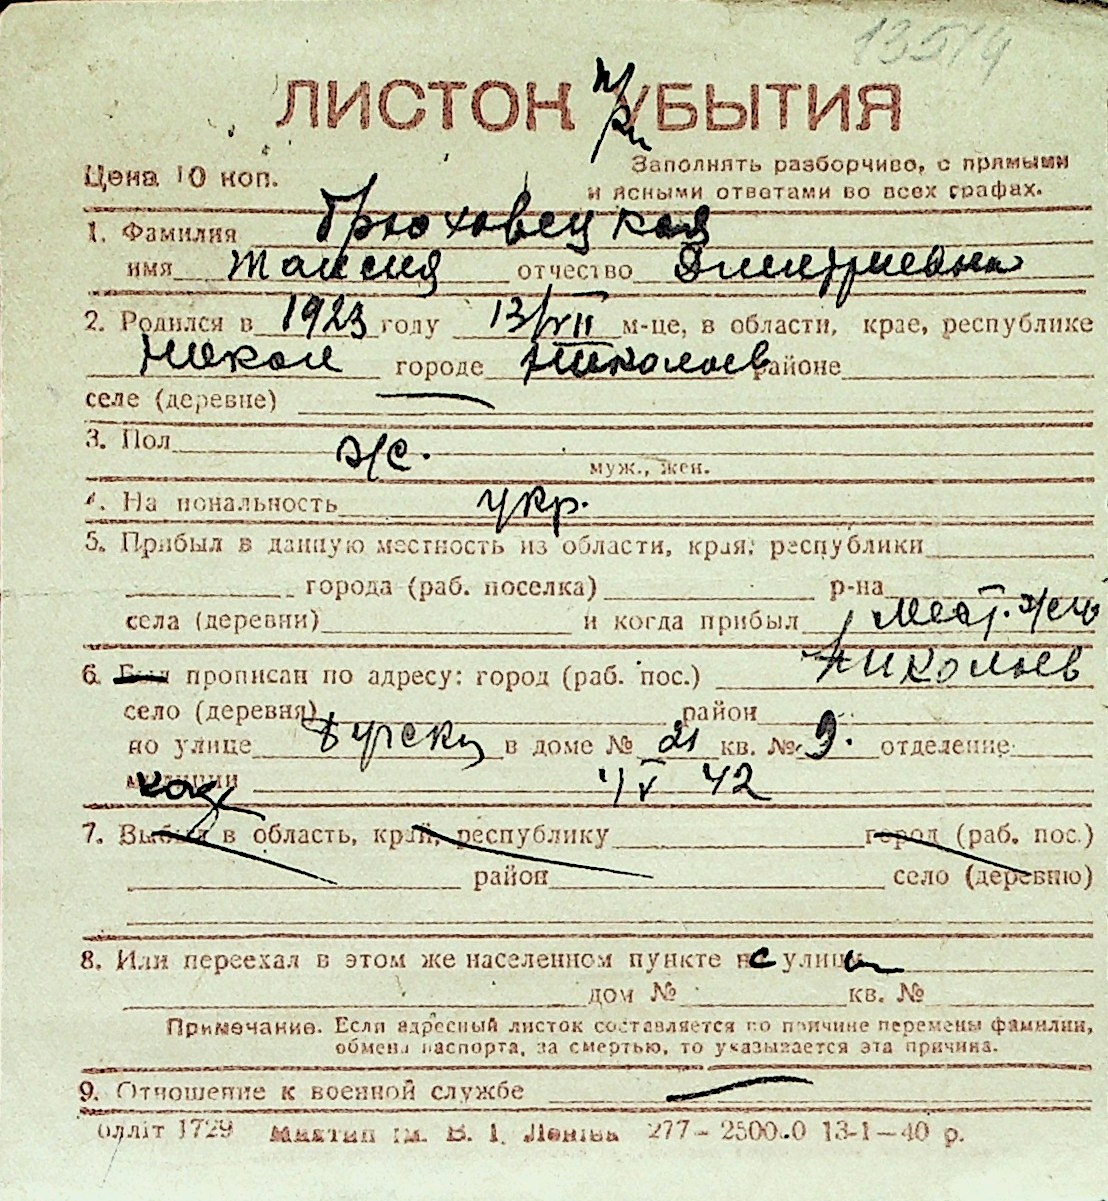 13514
ЛИСТОК при УБЫТИЯ
Цена 10 коп.
Заполнять разборчиво, с прямыми
и ясными ответами во всех графах.
1. Фамилия Брюховецкая
имя Таисия отчество Дмитриевна
2. Родился в 1923 году 13/VII м-це, в области, крае, республике
Никол городе Николаев районе
селе (деревне)
3. Пол ж.
муж., жен.
4. Национальность укр.
5. Прибыл в данную местность из области, края, республики
города (раб. поселка) р-на
села (деревни) и когда прибыл мест. жит
6. Был прописан по адресу: город (раб. пос.) Николаев
село (деревня) район
по улице в доме № 21 кв. № 9. отделение
милиции 4/V 42
7. Выбыл в область, край, республику город (раб. пос.)
район село (деревню)
8. Или переехал в этом же населенном пункте с улицы
дом № кв. №
Примечание. Если адресный листок составляется по причине перемены фамилии,
обмена паспорта, за смертью, то указывается эта причина.
9. Отношение к военной службе
олліт 1729 ім. В. І. Леніна 277 - 250000 13-1-40 р.